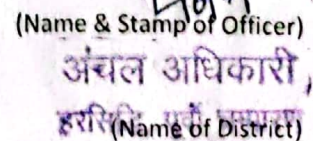 (Name & Stamp of Officer)
अंचल अधिकारी,
(Name of District)